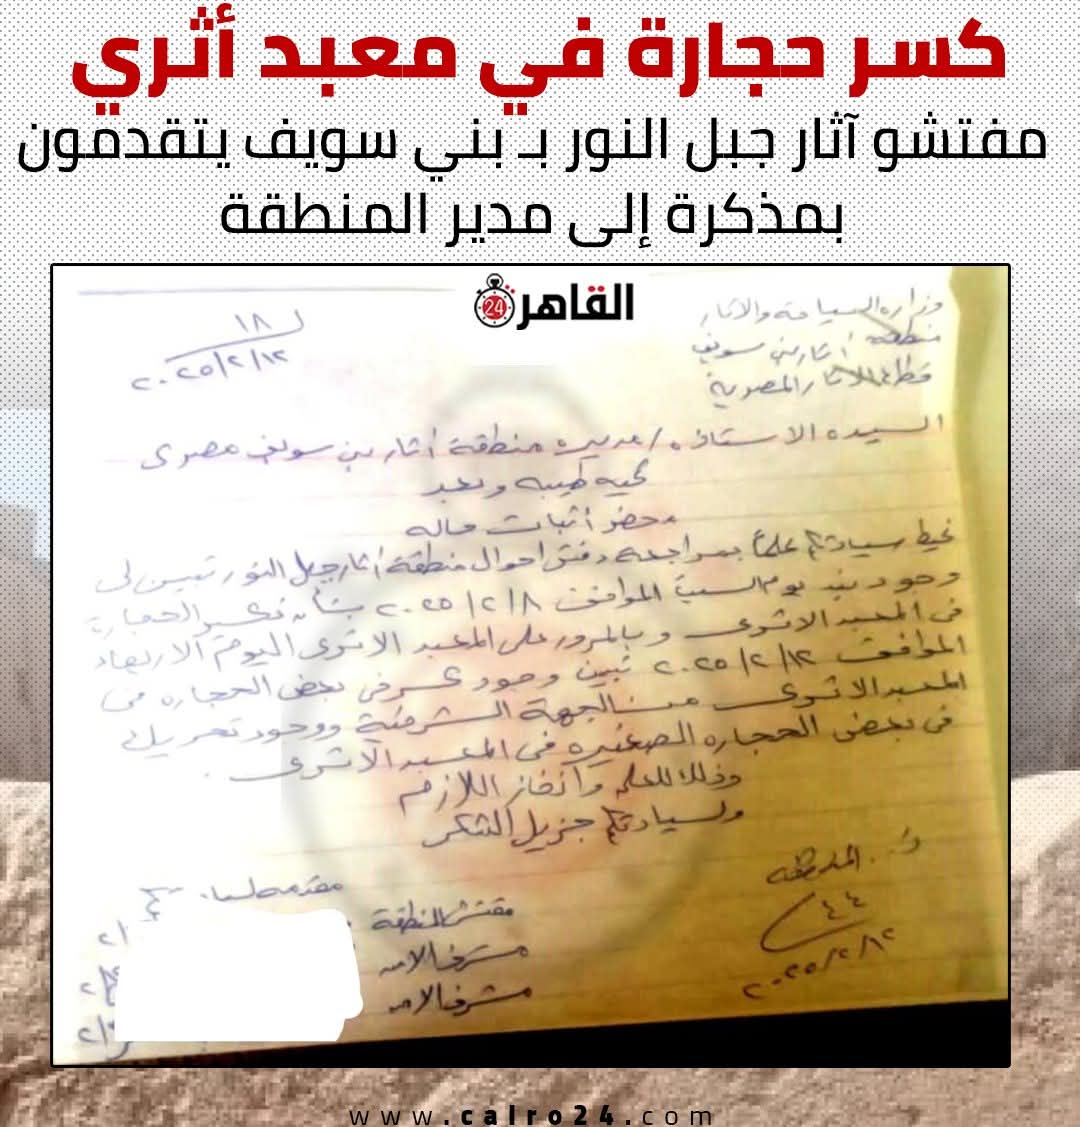 كسر حجارة في معبد أثري
مفتشو آثار جبل النور بـ بني سويف يتقدمون
بمذكرة إلى مدير المنطقة
القاهرة 24
وزارة السياحة والاثار
منطقة اثار بني سويف
قطاع الاثار المصرية
١٨
٢٠٢٥/٢/١٢
السيده الاستاذه / مديره منطقة اثار بني سويف مصرى
تحيه طيبه وبعد
محضر أثبات حاله
نحيط سيادتكم علماً بمراجعة دفتر احوال منطقة اثار جبل النور تبين لى
وجود بند يوم السبت الموافق ٢٠٢٥/٢/٨ بشأن تكسر الحجارة
فى المعبد الاثرى وبالمرور على المعبد الاثرى اليوم الاربعاء
الموافق ٢٠٢٥/٢/١٢ تبين وجود كسر فى بعض الحجاره من
المعبد الاثرى من الجهة الشرقية ووجود تحريك
فى بعض الحجاره الصغيره فى المعبد الاثرى .
وذلك للعلم واتخاذ اللازم
ولسيادتكم جزيل الشكر
مقدمه لسيادتكم
مفتش المنطقة
مشرف الامن
مشرف الامن
المنطقة
٤٤
٢٠٢٥/٢/١٢
www.cairo24.com